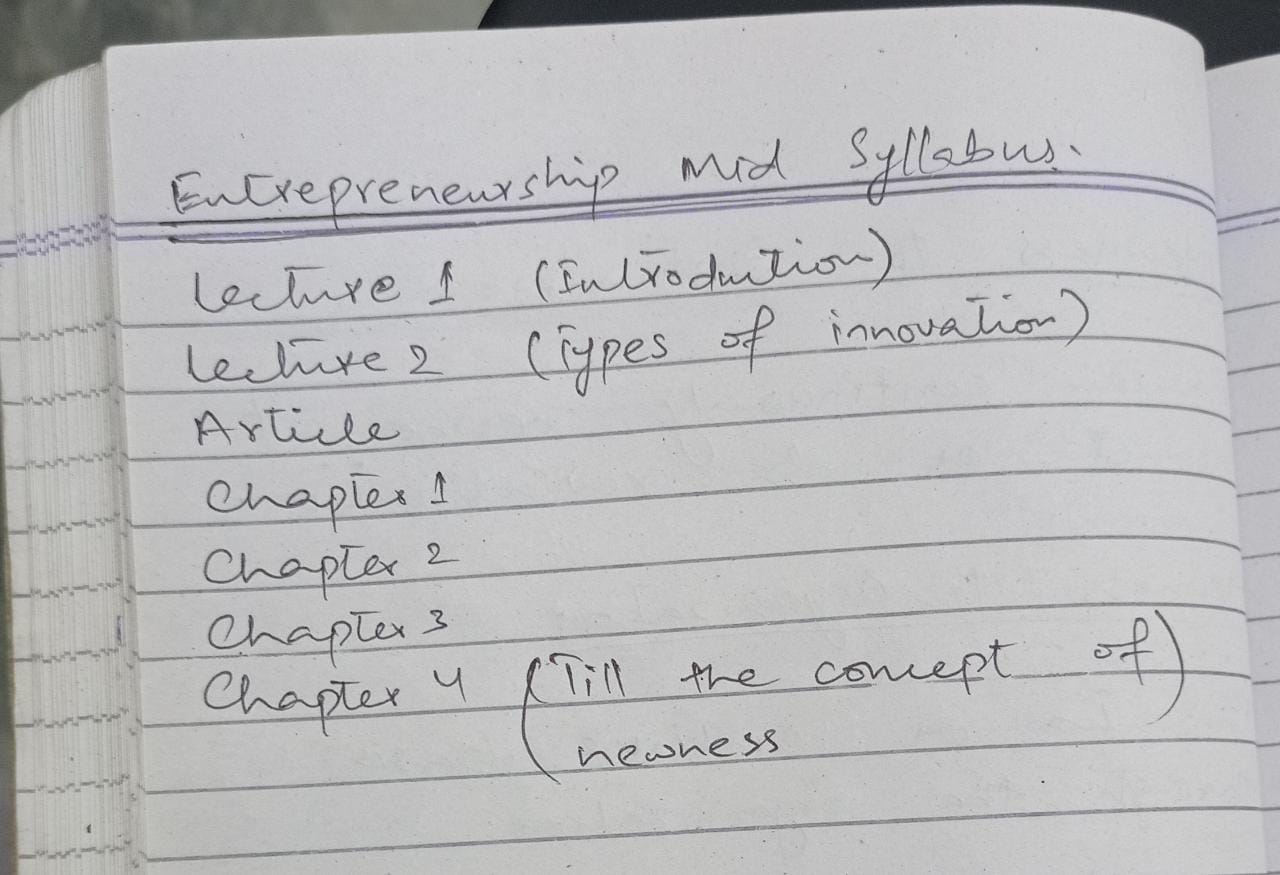 Entrepreneurship Mid Syllabus.
Lecture 1 (Introduction)
Lecture 2 (Types of innovation)
Article
Chapter 1
Chapter 2
Chapter 3
Chapter 4 (Till the concept of)
newness